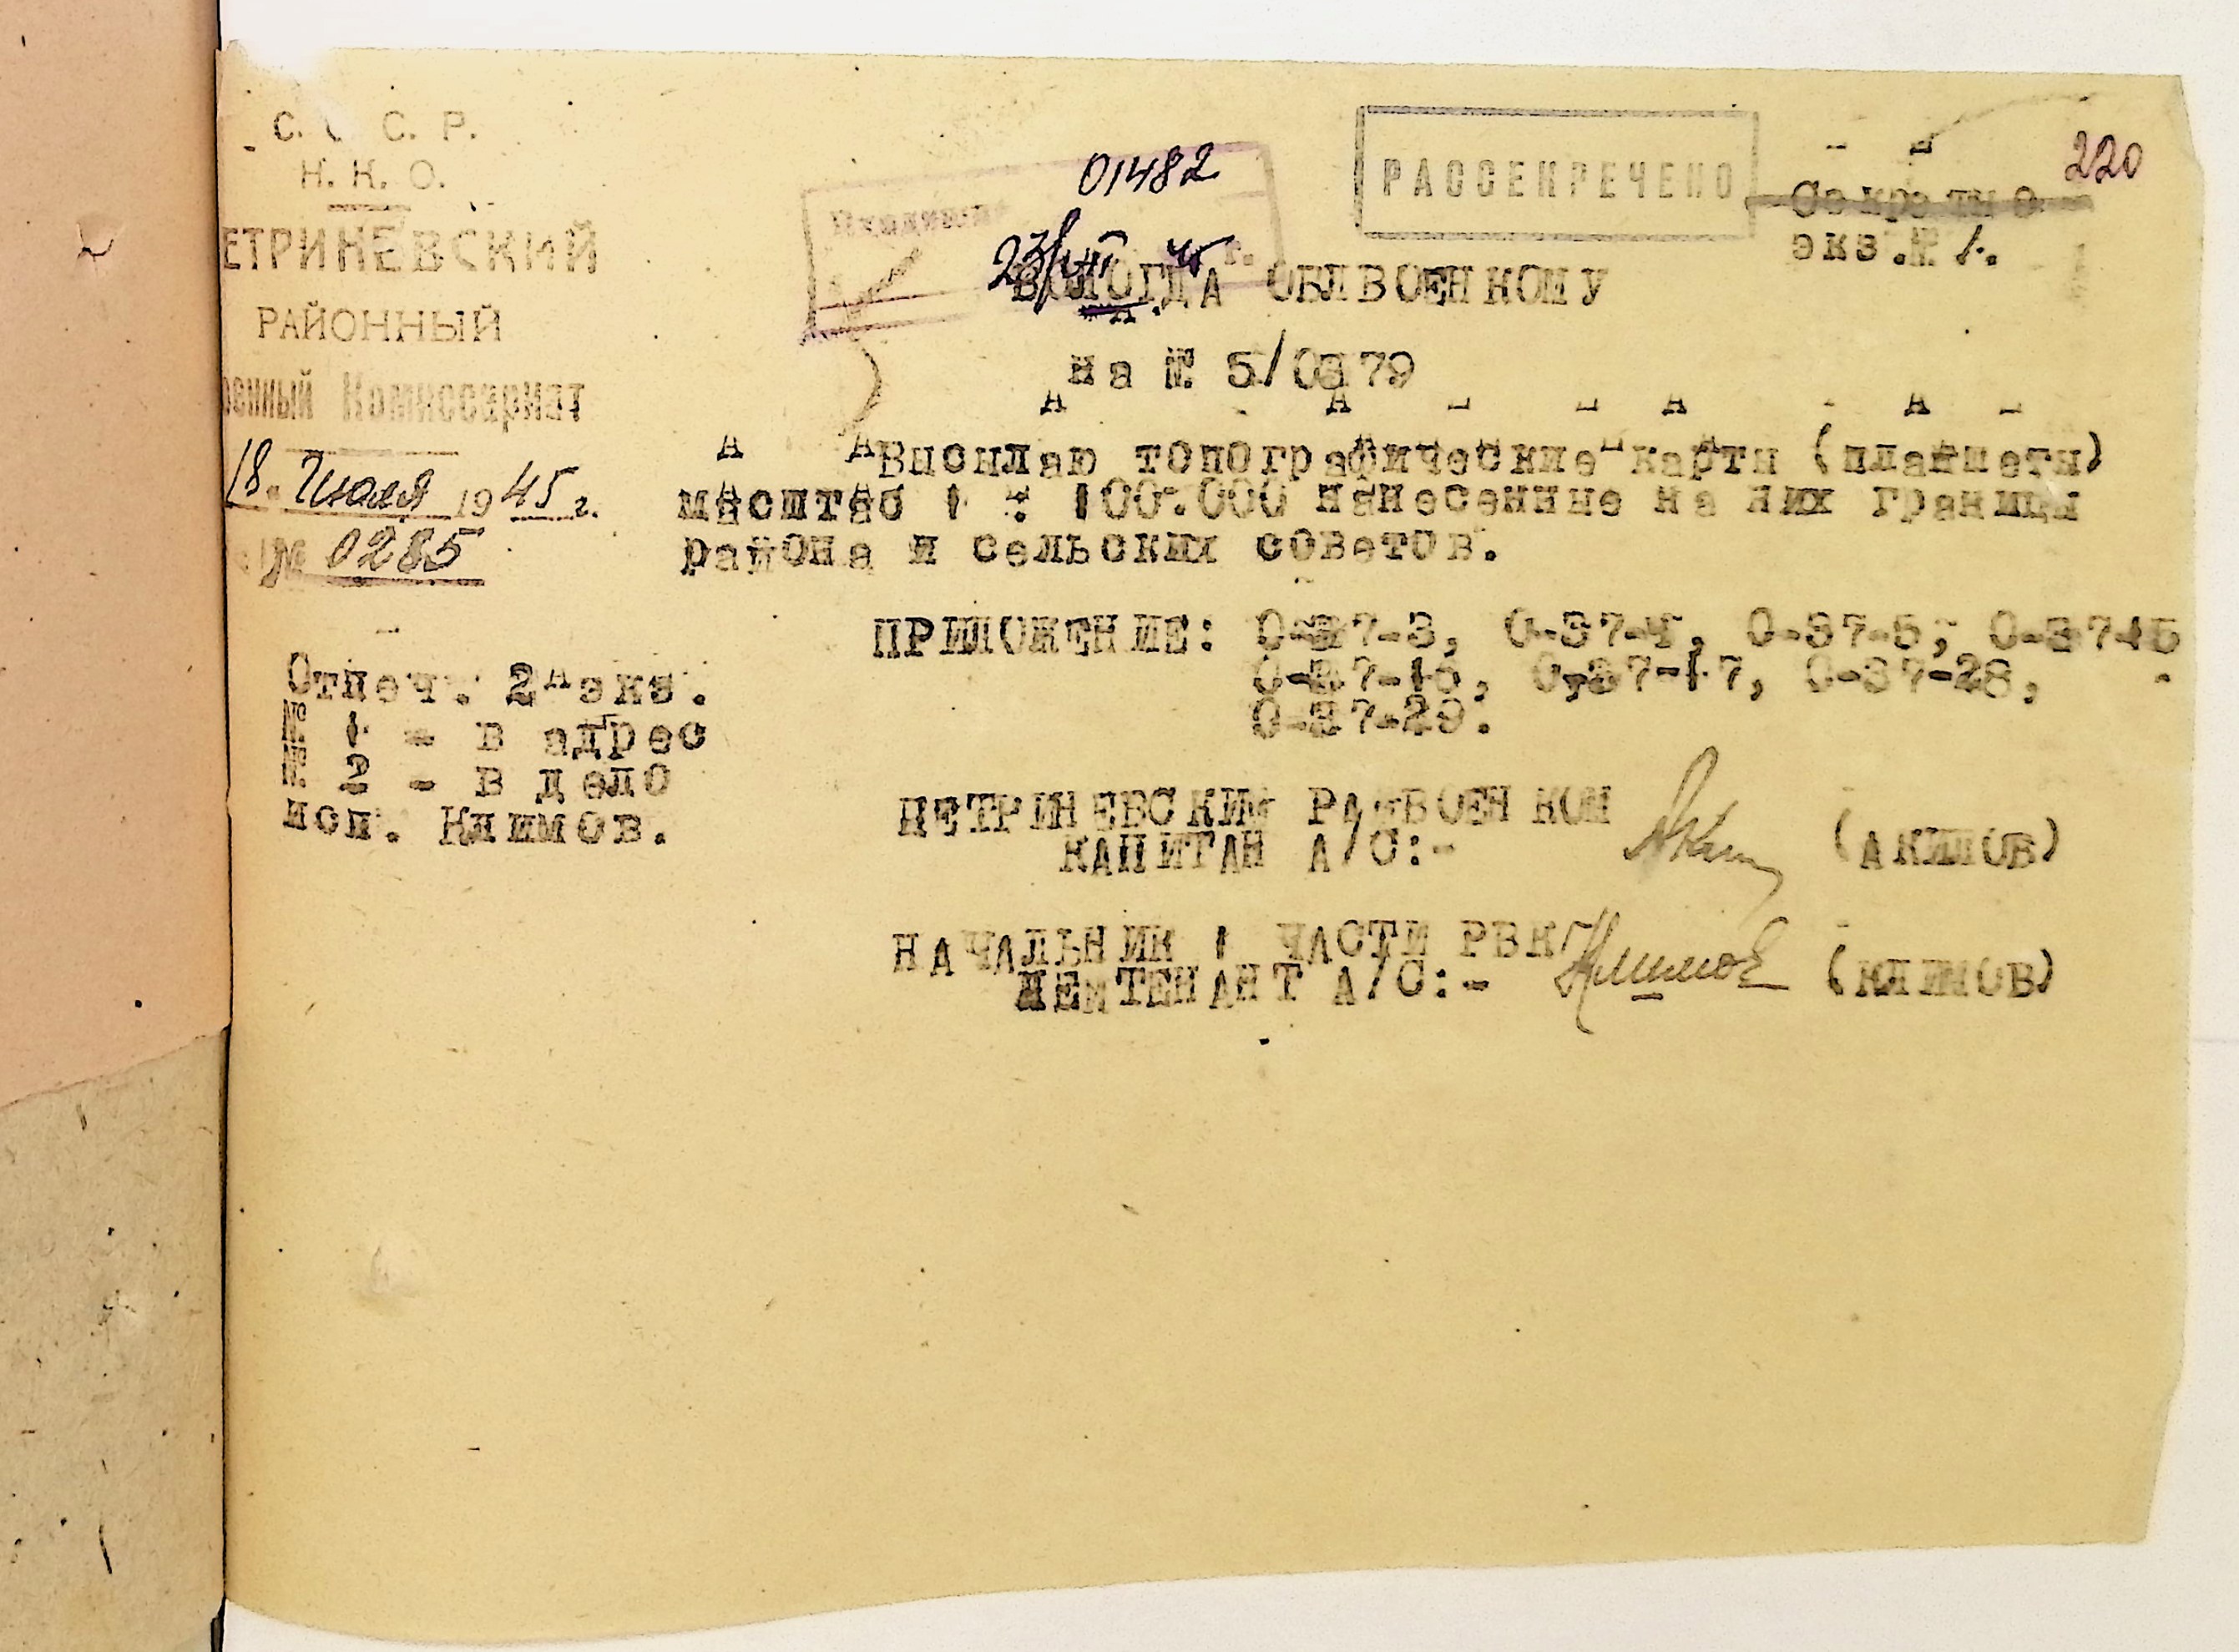 С. С. С. Р.
Н. К. О.
ЕТРИНЕВСКИЙ
РАЙОННЫЙ
оенный Комиссариат
18. Июля 1945 г.
№ 0285
01482
23/VII 45 г.
РАССЕКРЕЧЕНО
220
Секретно
экз.№ 1.
ВОЛОГДА ОБЛВОЕНКОМУ
на № 5/0879
Высылаю топографические карты (планшеты)
масштаб 1 : 100.000 нанесенные на них границы
района и сельских советов.
ПРИЛОЖЕНИЕ: 0-37-3, 0-37-4, 0-37-5, 0-3745
0-37-16, 0-37-17, 0-37-28,
0-37-29.
Отпеч. 2 экз.
№ 1 - в адрес
№ 2 - в дело
исп. Климов.
ПЕТРИНЕВСКИЙ РАЙВОЕНКОМ
КАПИТАН А/С:- (АКИМОВ)
НАЧАЛЬНИК 1 ЧАСТИ РВК Климов
ЛЕЙТЕНАНТ А/С:- (КЛИМОВ)